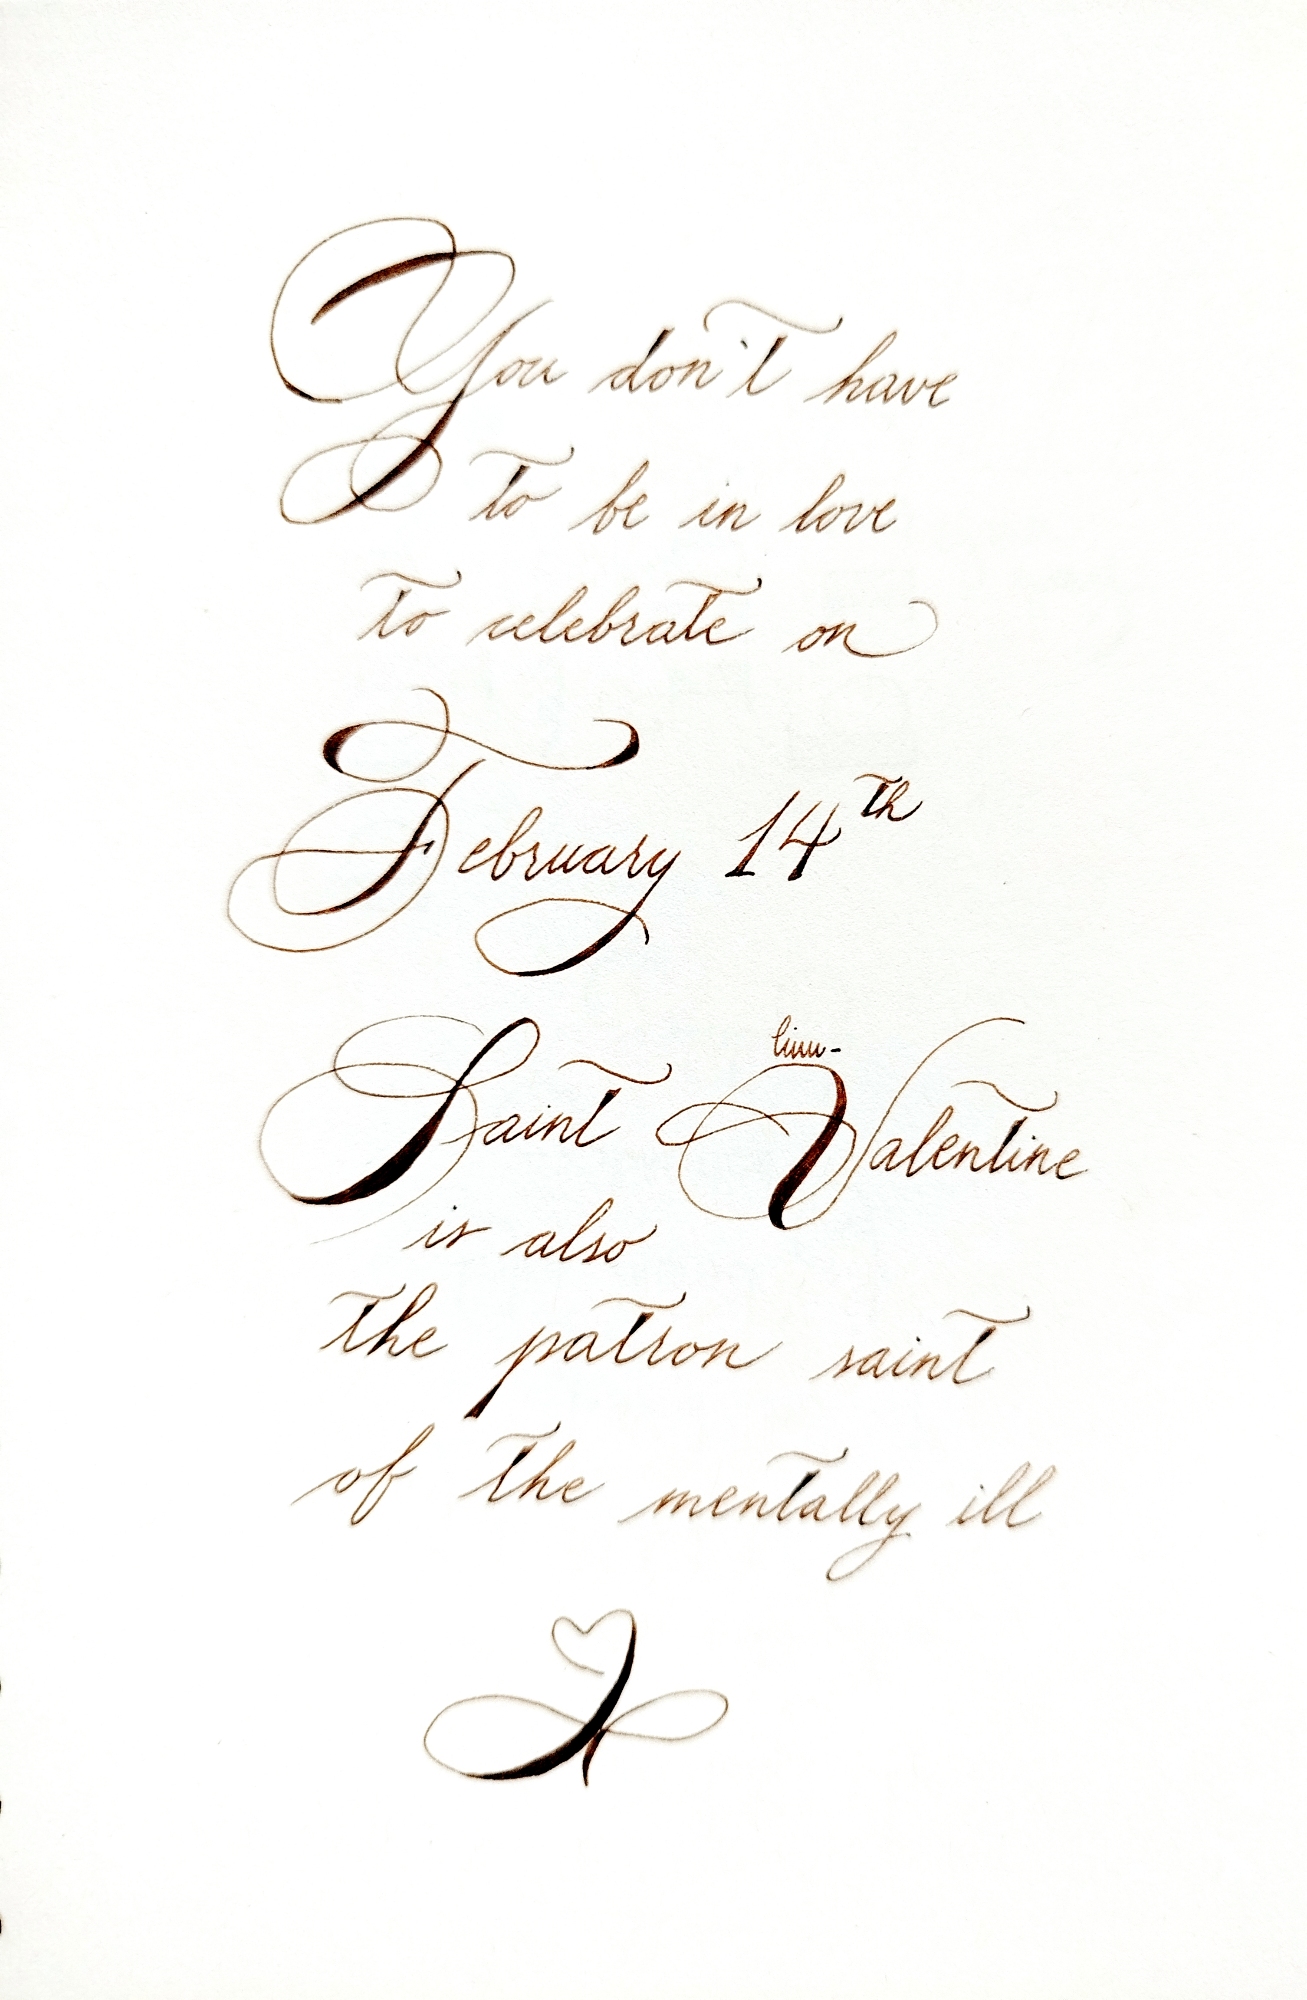 You don't have
to be in love
to celebrate on
February 14th
Saint Valentine
is also
the patron saint
of the mentally ill